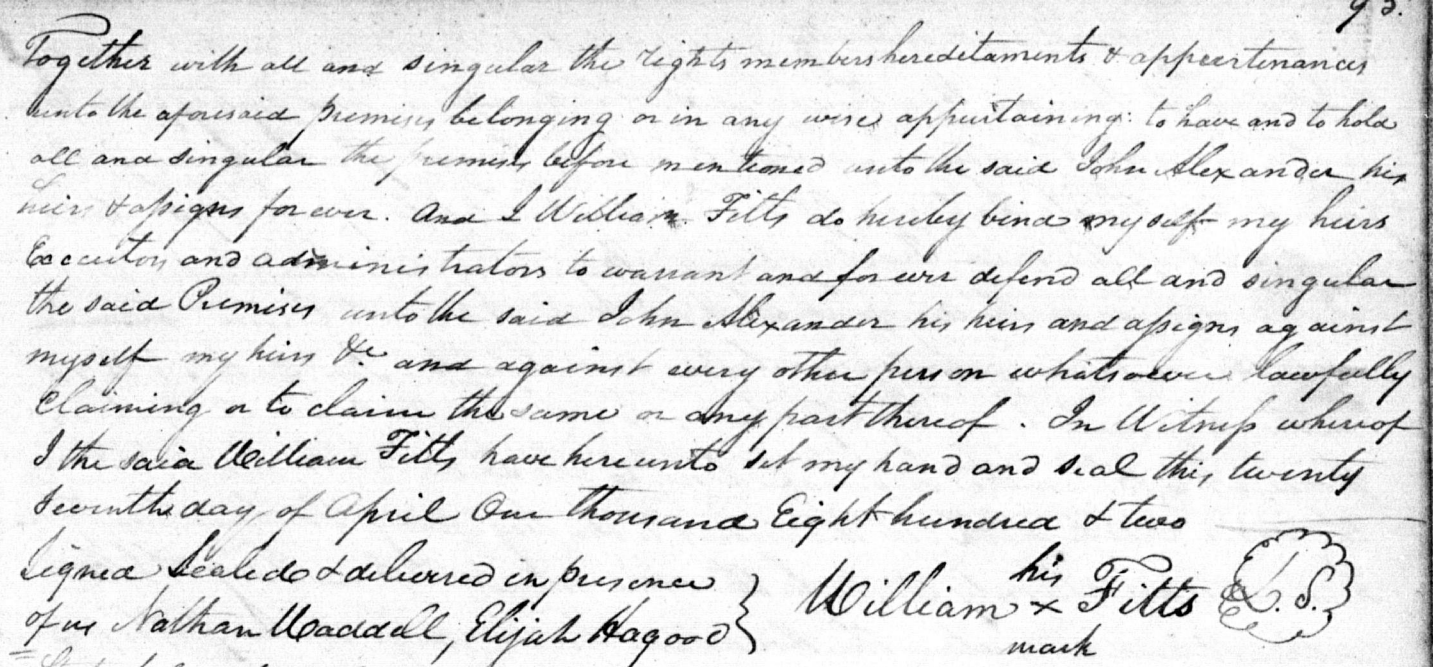 93.
Together with all and singular the rights members hereditaments & appeertenances
unto the aforesaid Premises belonging or in any wise appertaining: to have and to hold
all and singular the premises before mentioned unto the said John Alexander his
heirs & assigns forever. And I William Fitts do hereby bind myself my heirs
Executors and administrators to warrant and forever defend all and singular
the said Premises unto the said John Alexander his heirs and assigns against
myself my heirs &c and against every other person whatsoever lawfully
Claiming or to claim the same or any part thereof. In Witness whereof
I the said William Fitts have hereunto set my hand and seal this twenty
Seventh day of April One thousand Eight hundred & two
Signed Sealed & delivered in presence
of us Nathan Waddell, Elijah Hagood } William his x mark Fitts L.S.